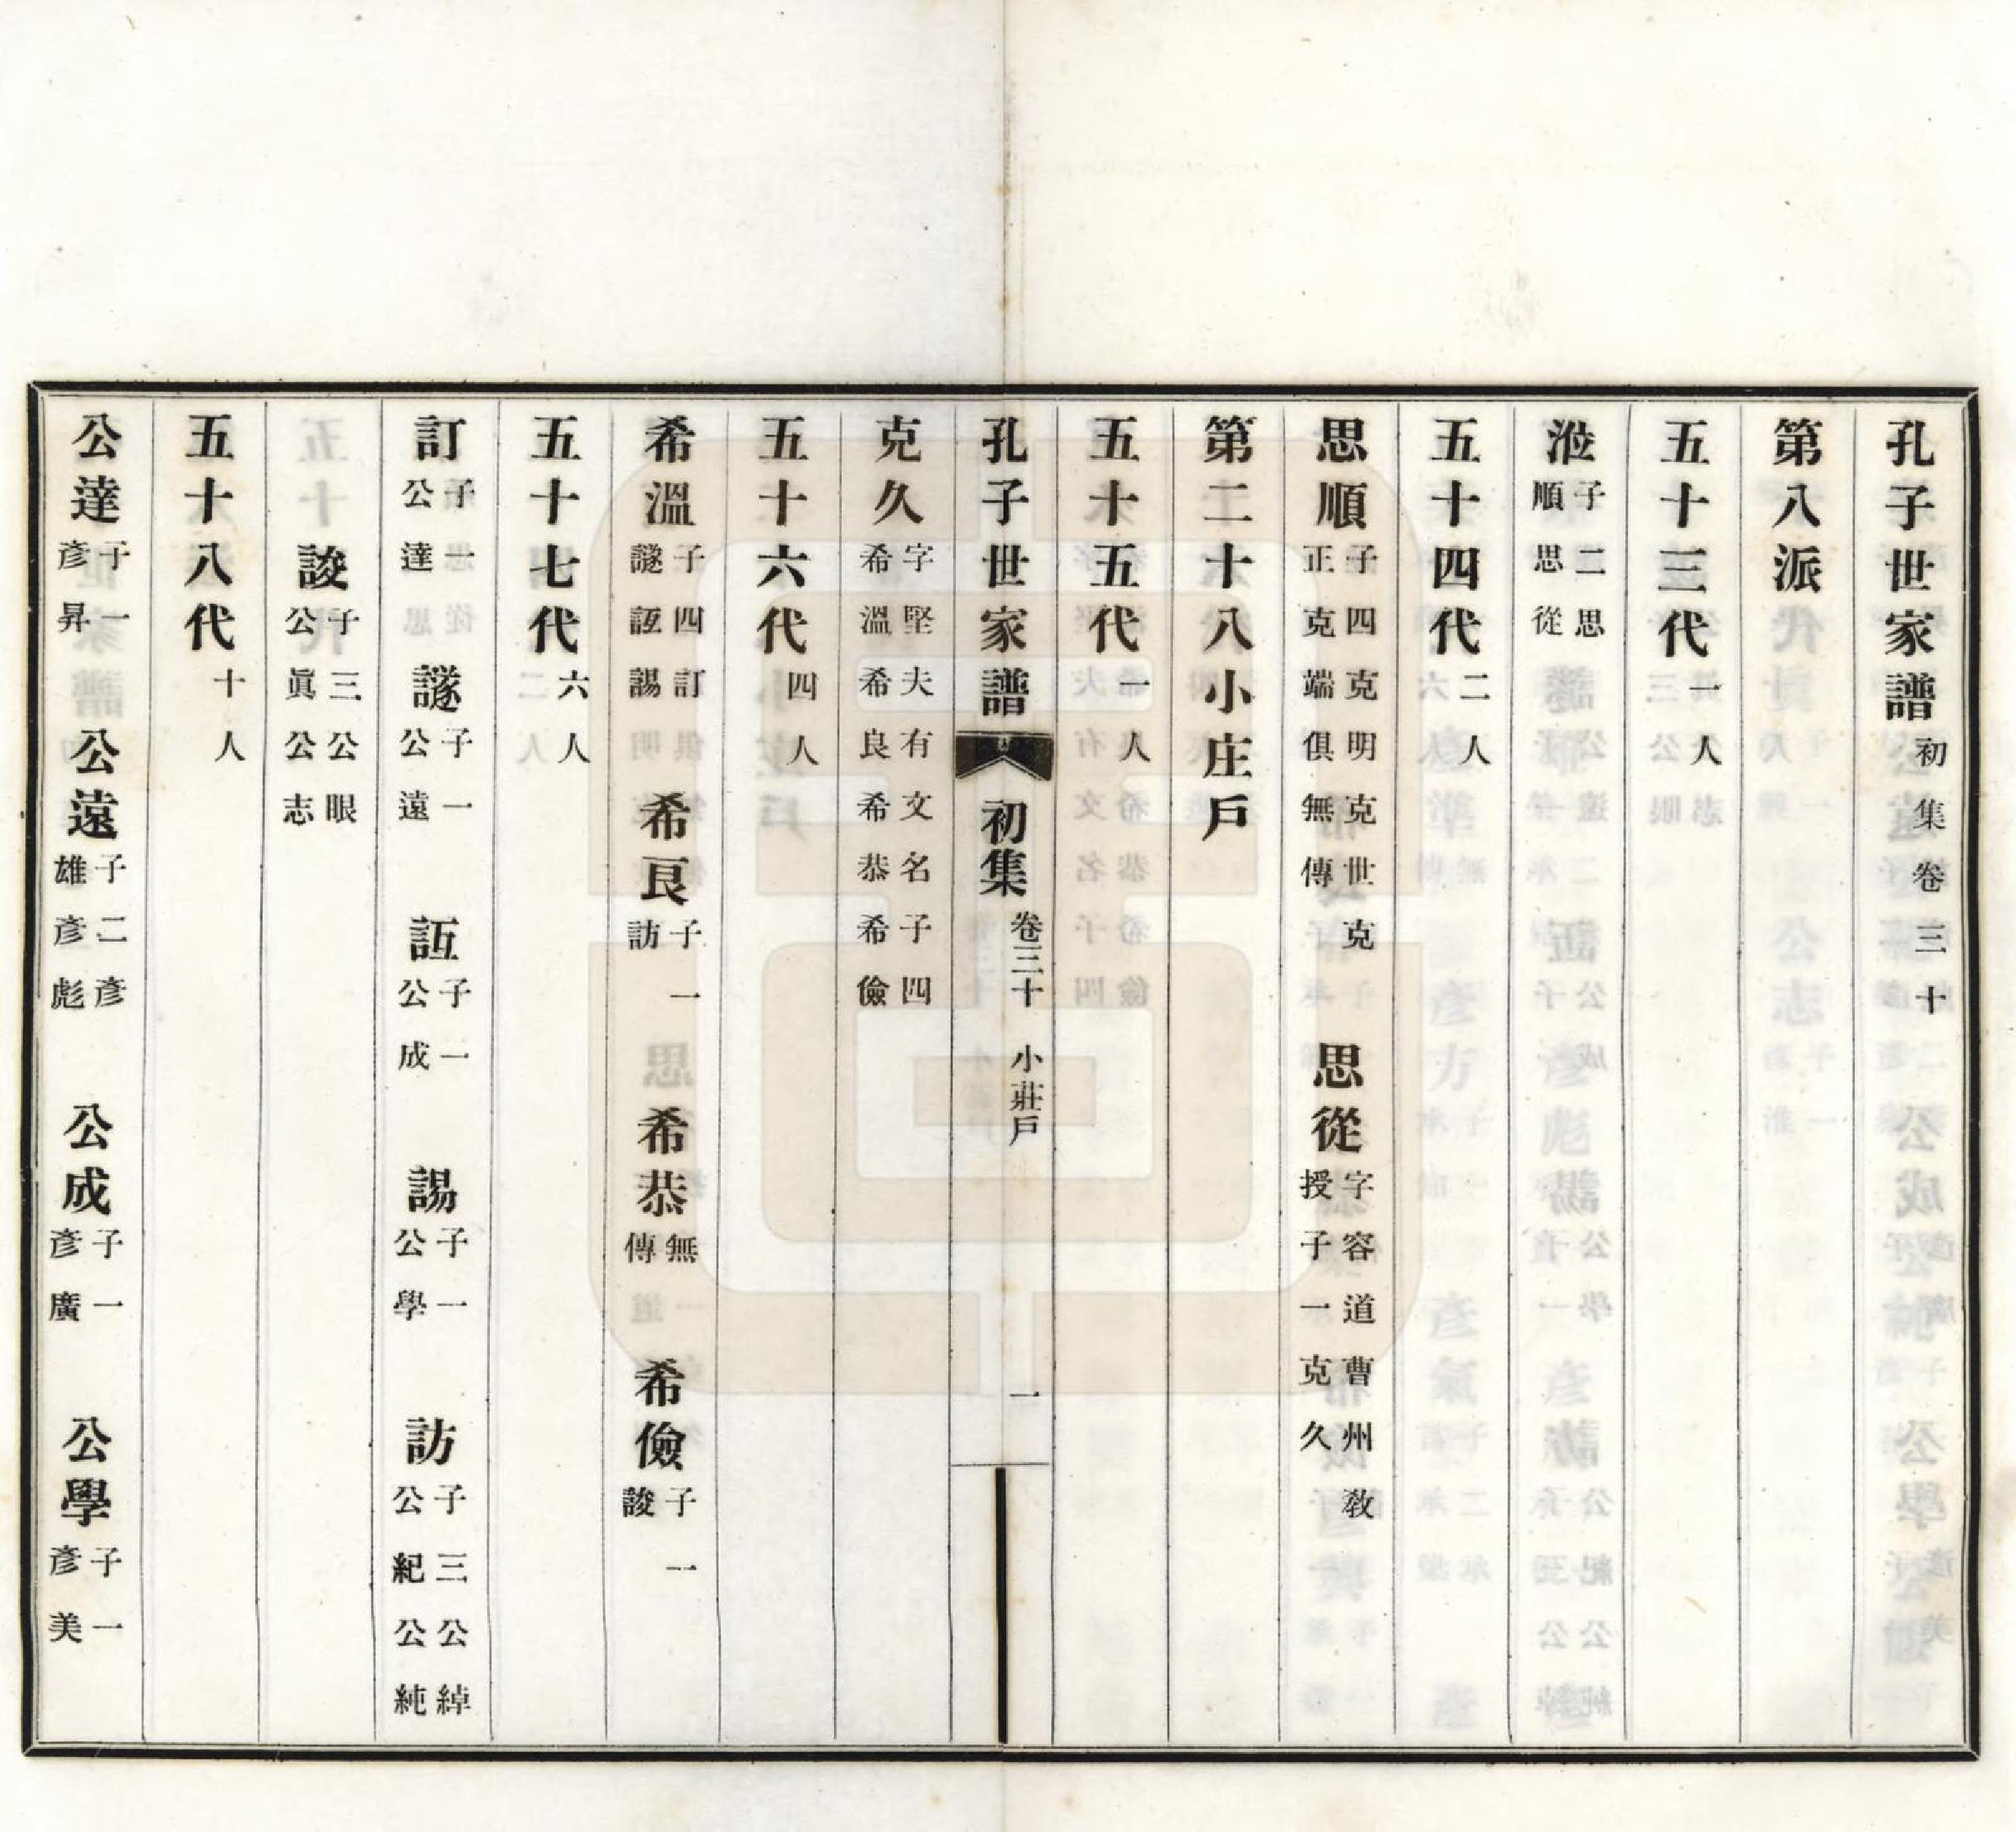 孔子世家譜初集卷三十
第八派
五十三代一人
浵子二思順思從
五十四代二人
思順子四克明克世克正克端俱無傳　思從字容道曹州教授子一克久
第二十八小庄戶
五十五代一人
孔子世家譜　初集　卷三十　小莊戶　一
克久字堅夫有文名子四希溫希良希恭希儉
五十六代四人
希溫子四訂譢𧦬諹　希良子一訪　希恭無傳　希儉子一詨
五十七代六人
訂子一公達　譢子一公遠　子一公成　諹子一公學　訪子三公綽公紀公純
子三公眼公眞公志
五十八代十人
公達子一彥昇　公遠子二彥雄彥彪　公成子一彥廣　公學子一彥美